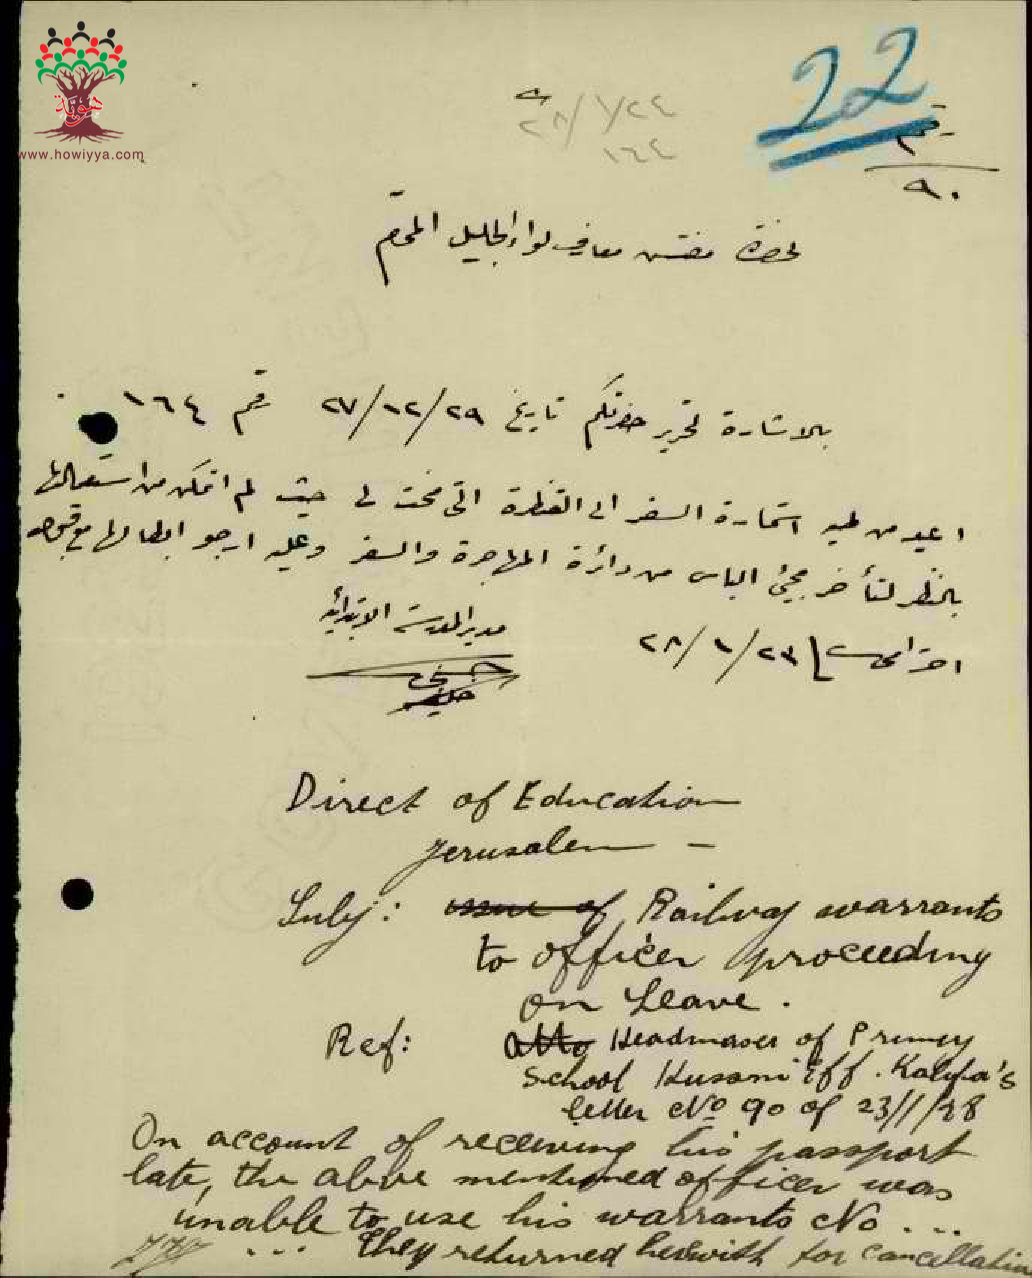 هوية
www.howiyya.com
22
٢٨/١/٢٤
١٦٤
رقم
٩٠
لحضرة مفتش معارف لواء الجليل المحترم
بالاشارة لتحرير حضرتكم تاريخ ٢٧/١٢/٢٩ رقم ١٦٤
اعيد من طيه استمارة السفر الى القنطرة التي منحت لي حيث لم اتمكن من استعمالها
بالنظر لتأخر مجيئ الباس من دائرة المهاجرة والسفر وعليه ارجو ابطالها مع قبول
احترامي ٢٨/١/٢٣
مدير المدرسة الابتدائية
Direct of Education
Jerusalem –
Subj: issue of Railway warrants
to officer proceeding
on Leave.
Ref: Headmaser of Primey
School Husani Eff. Kalifa's
letter No 90 of 23/1/28
On account of receiving his passport
late, the above mentioned officer was
unable to use his warrants No ...
... They returned herewith for cancellation